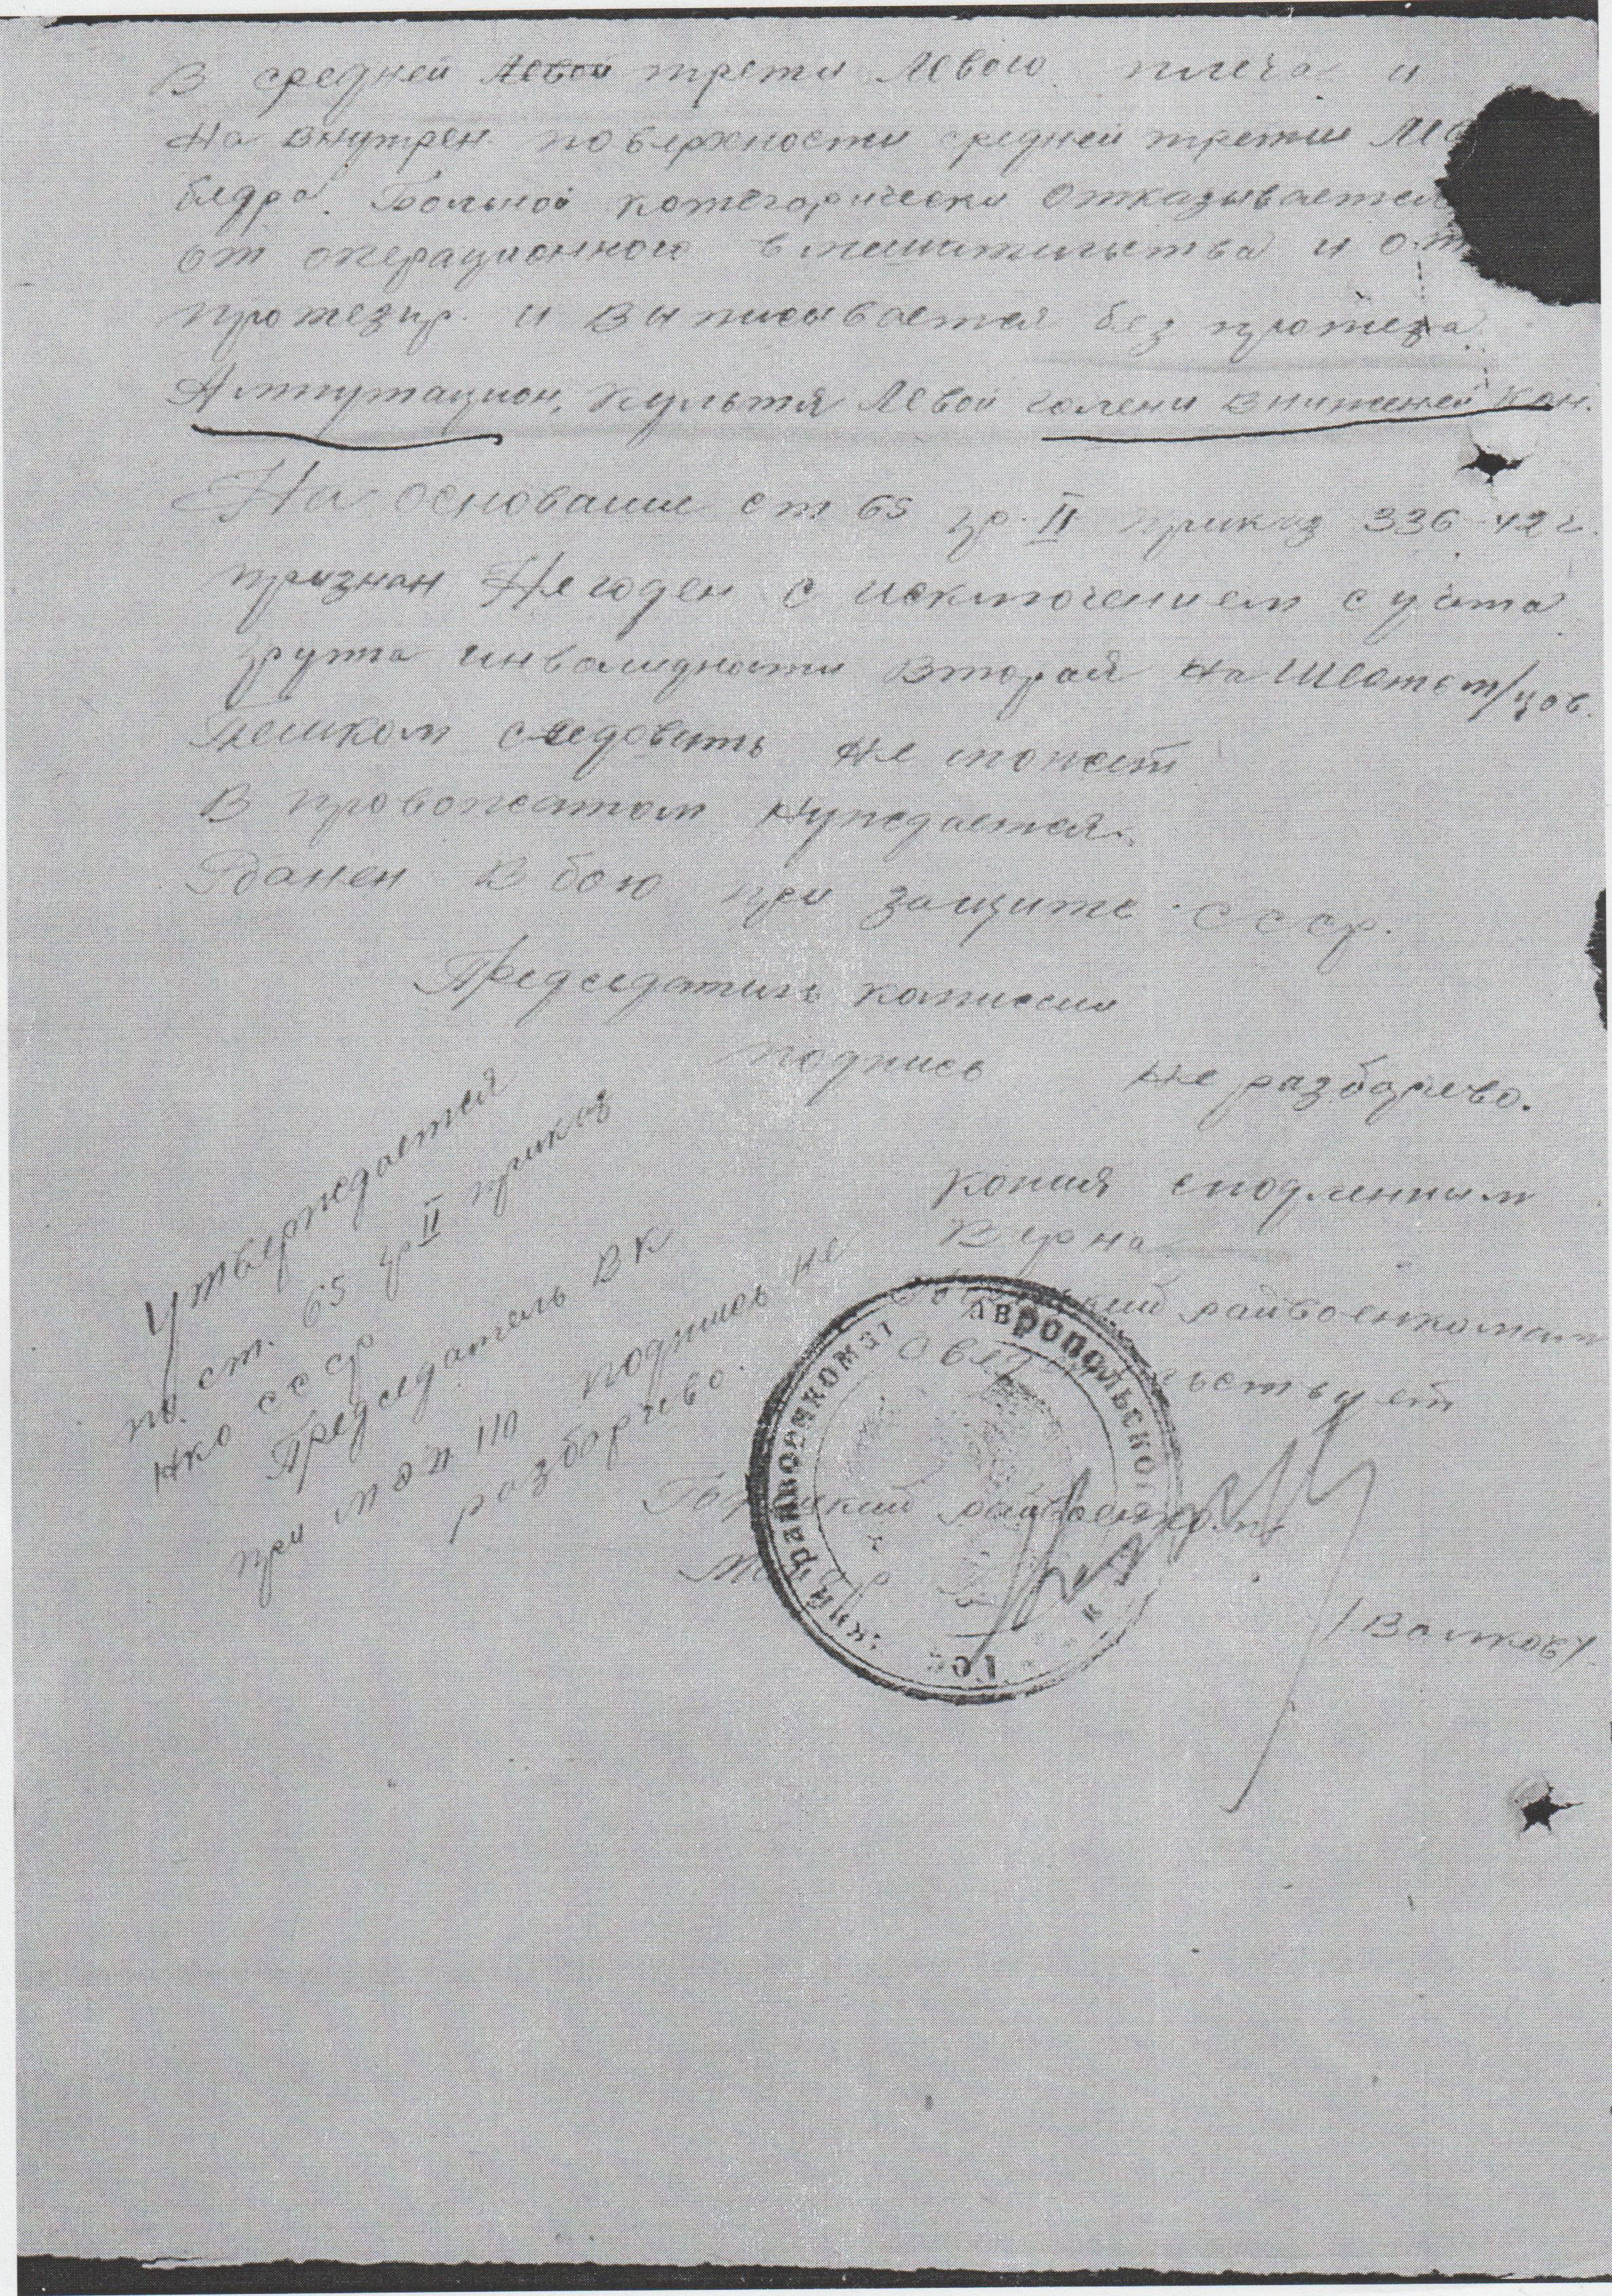 В средней левой трети левого плеча и
на внутрен. поверхности средней трети лев
бедра. Больной категорически отказывается
от операционного вмешательства и от
протезир. и выписывается без протеза.
Ампутацион. культя левой голени в нижней кон.
На основание ст 65 гр. II приказ 336-42 г.
признан Не годен с исключением с учёта
группа инвалидности вторая на
Пешком следовать не может
В провожатом нуждается.
Ранен в бою при защите СССР.
Председатель комиссии
подпись не разборчево.
Утверждается
по ст. 65 гр II приказ
НКО СССР
Председатель ВК
при МЭП 110 подпись не
разборчево.
копия сподленным
Верна
райвоенкомат
райвоенком
/Валков/
райвоенкомат авропольског